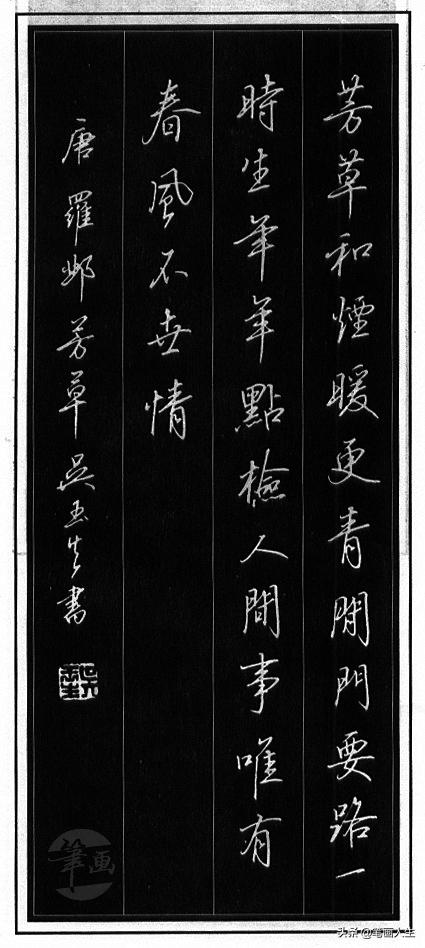 芳草和煙暖更青閒門要路一
時生年年點檢人間事唯有
春風不世情
唐羅邺芳草吳玉生書
筆画
头条 @笔画人生